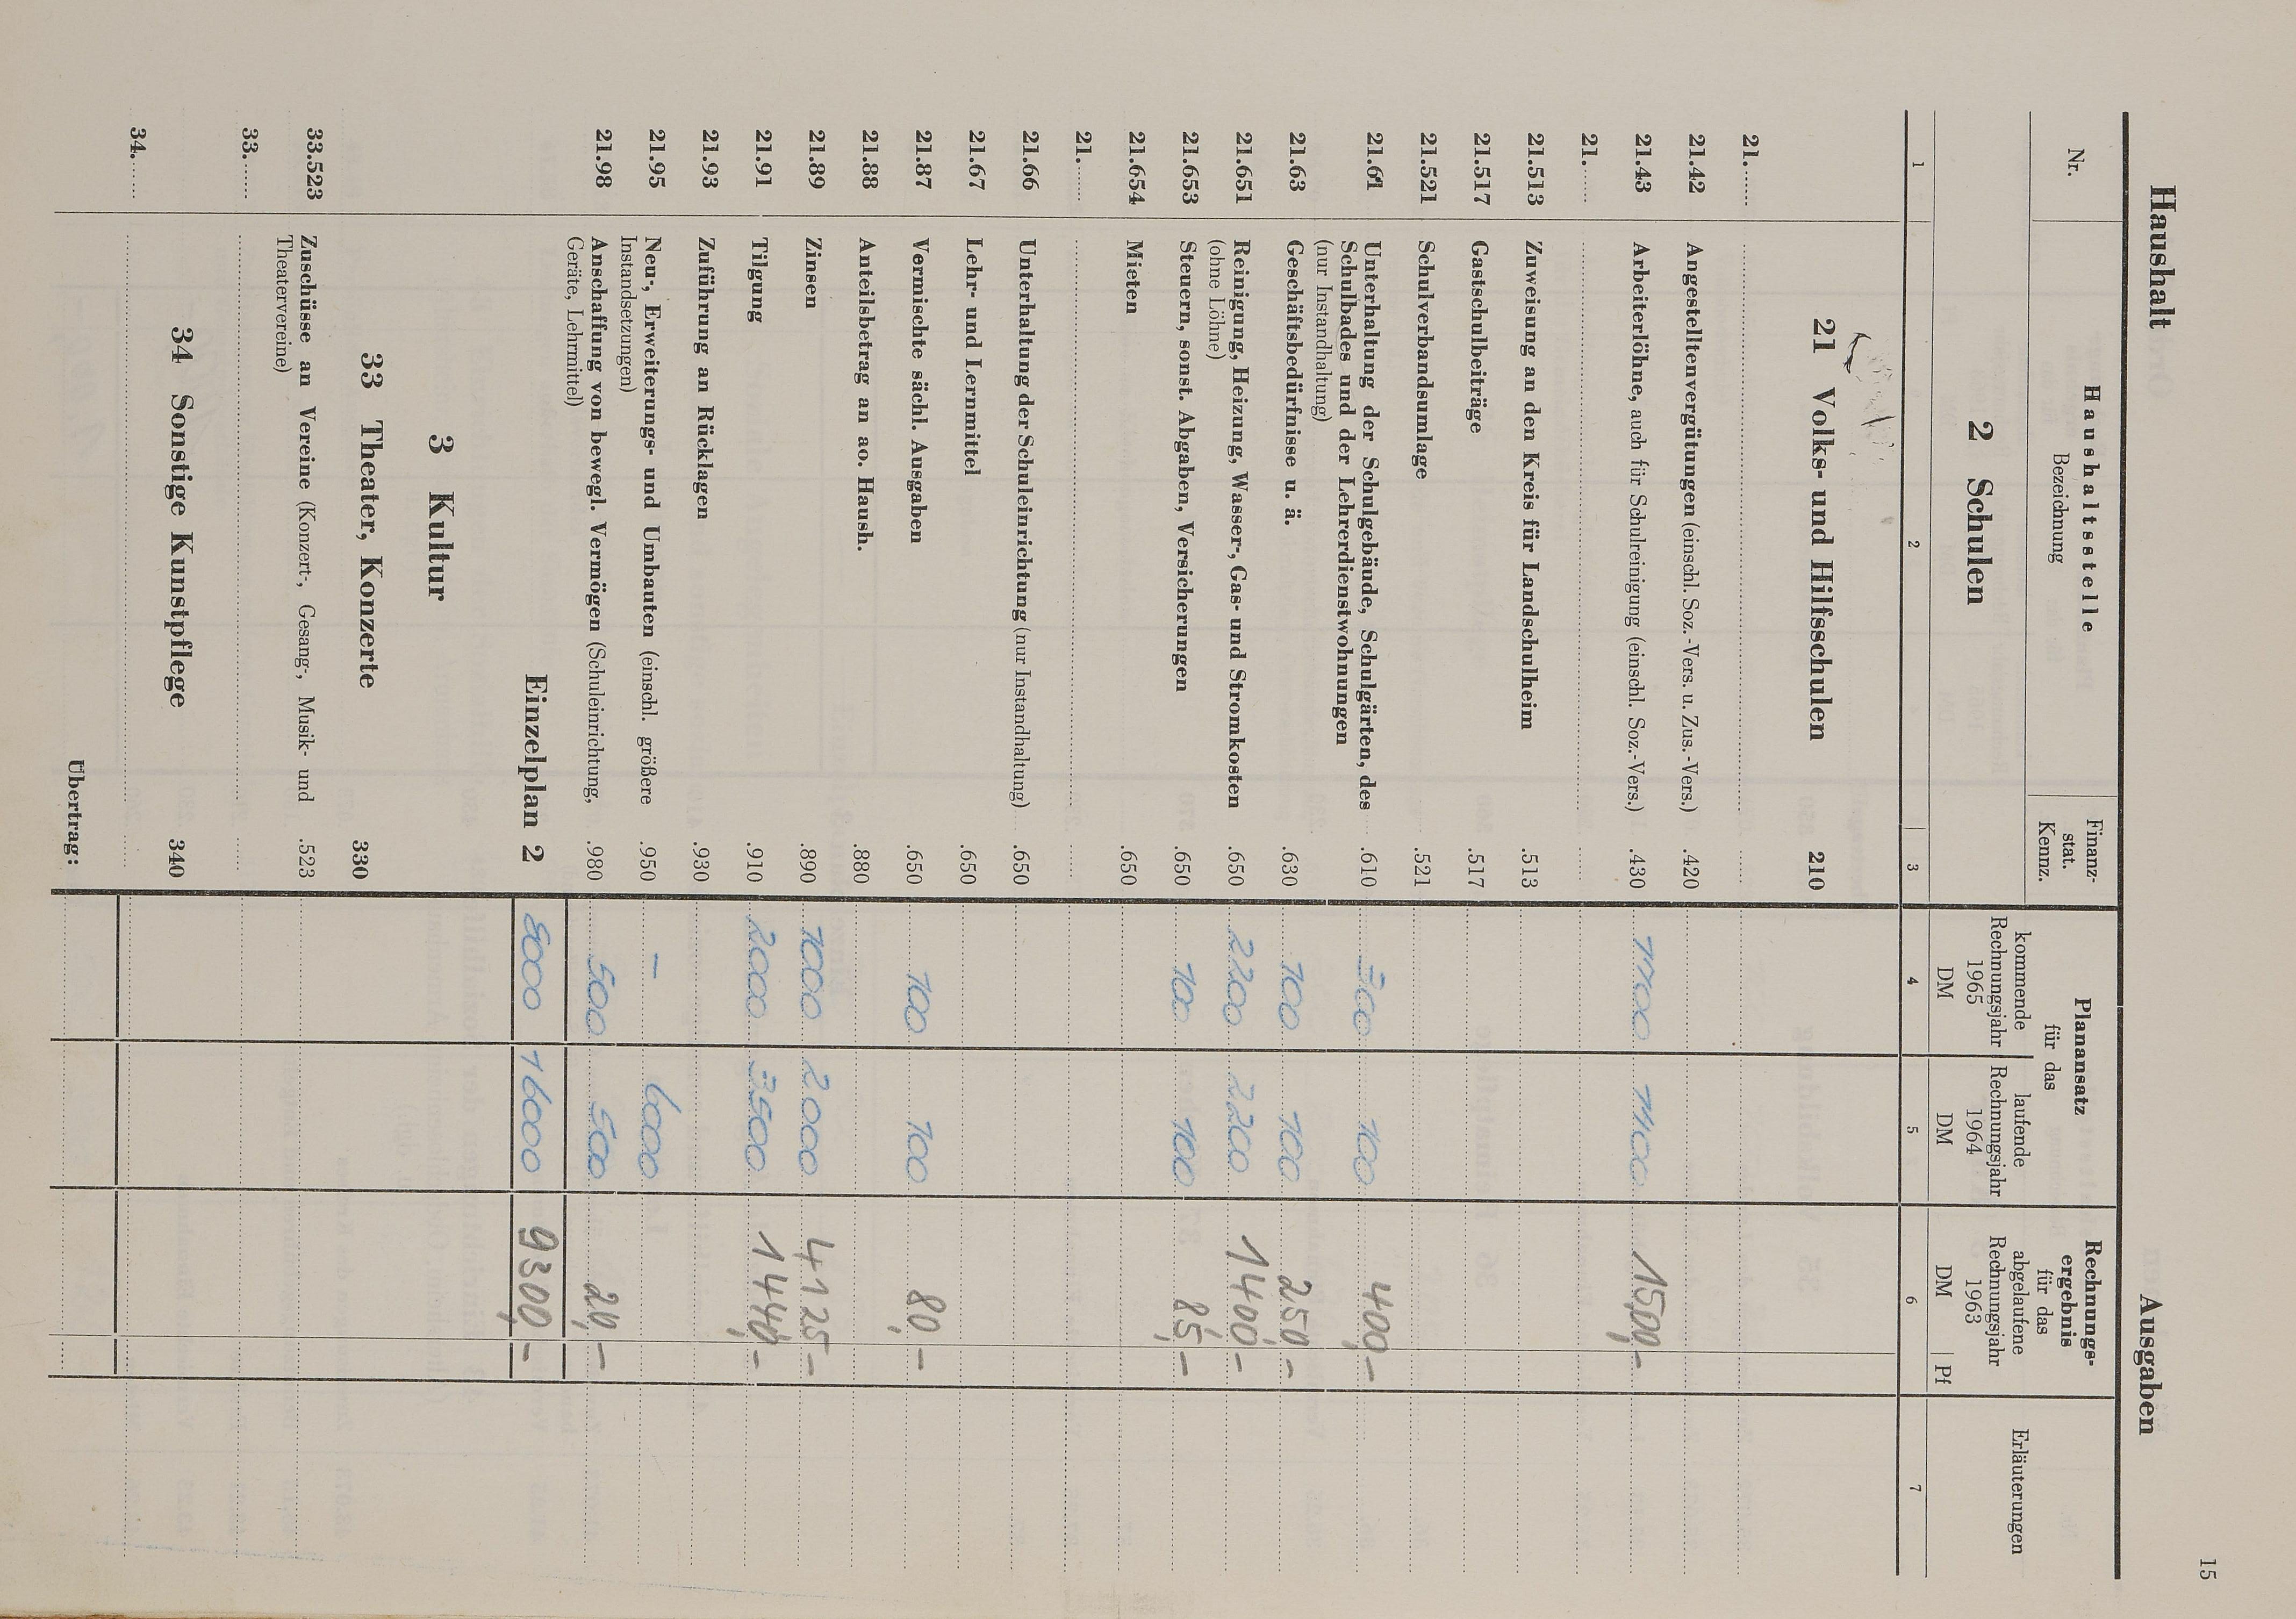 15
Haushalt Ausgaben
Haushaltsstelle
Nr. Bezeichnung
Finanz-
stat.
Kennz.
Planansatz
für das
kommende
Rechnungsjahr
1965
DM
laufende
Rechnungsjahr
1964
DM
Rechnungs-
ergebnis
für das
abgelaufene
Rechnungsjahr
1963
DM Pf
Erläuterungen
1 2 3 4 5 6 7
2 Schulen
21 Volks- und Hilfsschulen 210
21.......
21.42 Angestelltenvergütungen (einschl. Soz.-Vers. u. Zus.-Vers.) .420
21.43 Arbeiterlöhne, auch für Schulreinigung (einschl. Soz.-Vers.) .430 1700 1400 1500,-
21.......
21.513 Zuweisung an den Kreis für Landschulheim .513
21.517 Gastschulbeiträge .517
21.521 Schulverbandsumlage .521
21.61 Unterhaltung der Schulgebäude, Schulgärten, des .610 300 100 400,-
Schulbades und der Lehrerdienstwohnungen
(nur Instandhaltung)
21.63 Geschäftsbedürfnisse u. ä. .630 100 100 250,-
21.651 Reinigung, Heizung, Wasser-, Gas- und Stromkosten .650 2200 2200 1400,-
(ohne Löhne)
21.653 Steuern, sonst. Abgaben, Versicherungen .650 100 100 85,-
21.654 Mieten .650
21.......
21.66 Unterhaltung der Schuleinrichtung (nur Instandhaltung) .650
21.67 Lehr- und Lernmittel .650
21.87 Vermischte sächl. Ausgaben .650 100 100 80,-
21.88 Anteilsbetrag an ao. Haush. .880
21.89 Zinsen .890 1000 2000 4125,-
21.91 Tilgung .910 2000 3500 1440,-
21.93 Zuführung an Rücklagen .930
21.95 Neu-, Erweiterungs- und Umbauten (einschl. größere .950 - 6000
Instandsetzungen)
21.98 Anschaffung von bewegl. Vermögen (Schuleinrichtung, .980 500 500 20,-
Geräte, Lehrmittel)
Einzelplan 2 8000 16000 9300,-
3 Kultur
33 Theater, Konzerte 330
33.523 Zuschüsse an Vereine (Konzert-, Gesang-, Musik- und .523
Theatervereine)
33.......
34 Sonstige Kunstpflege 340
34.......
Übertrag: